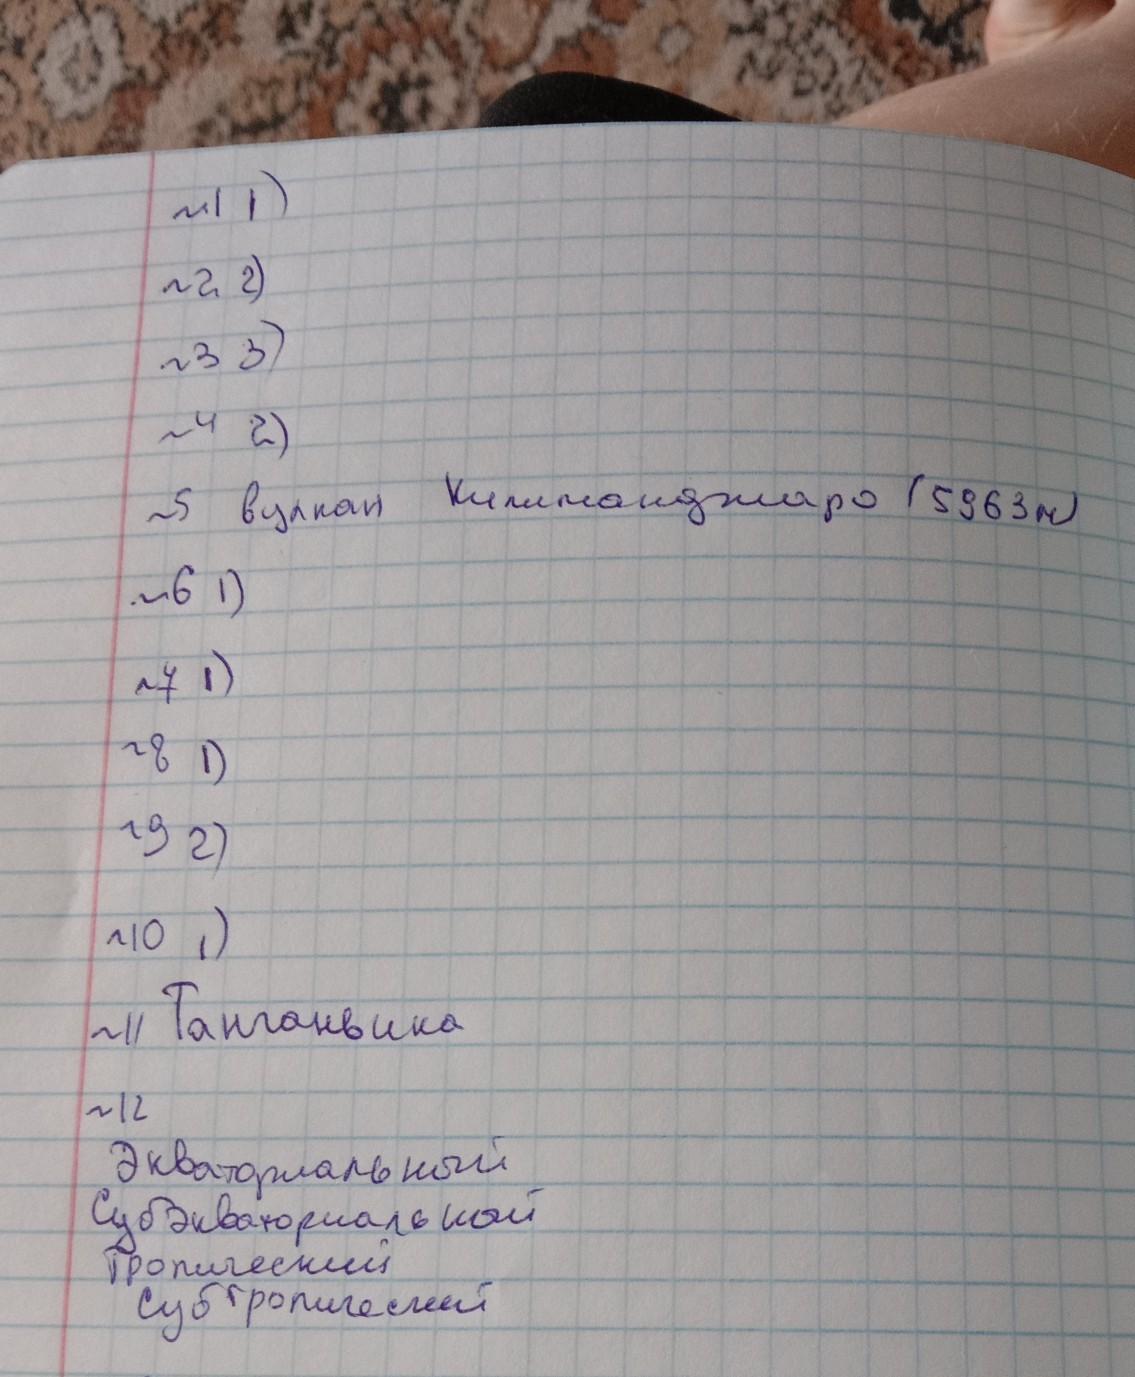 №1 1)
№2 2)
№3 3)
№4 2)
№5 вулкан Килиманджаро (5963м)
№6 1)
№7 1)
№8 1)
№9 2)
№10 1)
№11 Танганьика
№12
Экваториальный
Субэкваториальный
Тропический
Субтропический